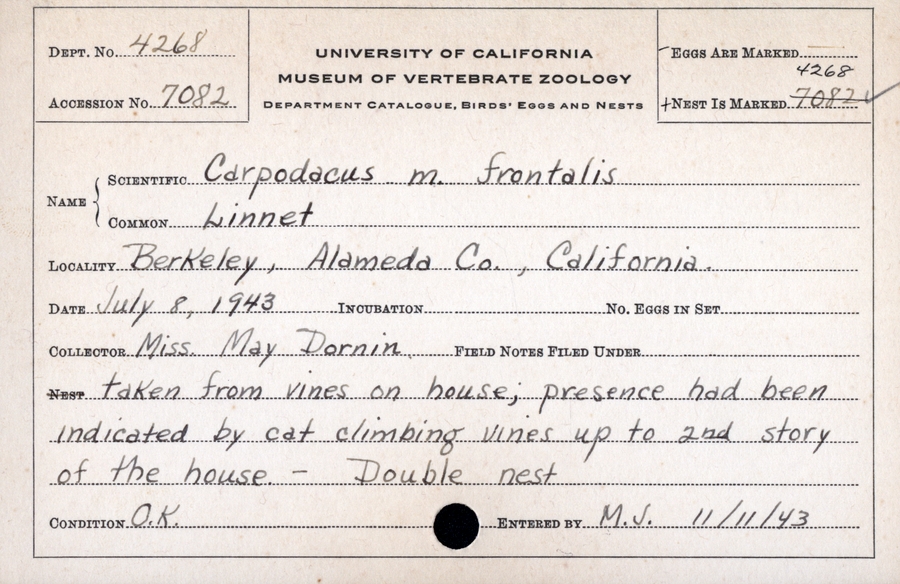 DEPT. No. 4268
ACCESSION No. 7082
UNIVERSITY OF CALIFORNIA
MUSEUM OF VERTEBRATE ZOOLOGY
DEPARTMENT CATALOGUE, BIRDS' EGGS AND NESTS
EGGS ARE MARKED
4268
+NEST IS MARKED 7082 ✓
NAME
SCIENTIFIC Carpodacus m. frontalis
COMMON Linnet
LOCALITY Berkeley, Alameda Co., California.
DATE July 8, 1943 INCUBATION No. EGGS IN SET
COLLECTOR Miss. May Dornin. FIELD NOTES FILED UNDER
NEST taken from vines on house; presence had been
indicated by cat climbing vines up to 2nd story
of the house. - Double nest
CONDITION O.K. ENTERED BY M.J. 11/11/43